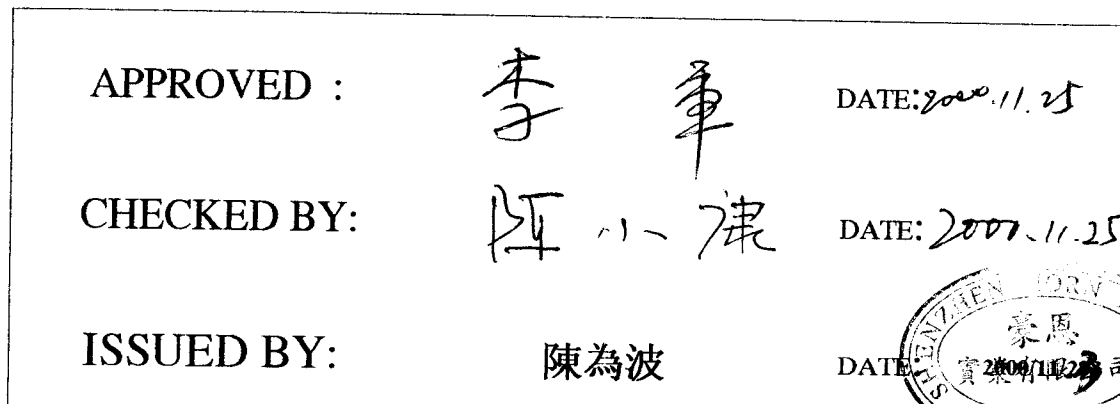 APPROVED : 李 軍 DATE: 2000.11.25
CHECKED BY: 陈小康 DATE: 2000.11.25
ISSUED BY: 陳為波 DATE: 2000/11/23
SHENZHEN HORN
豪恩
實業有限 司